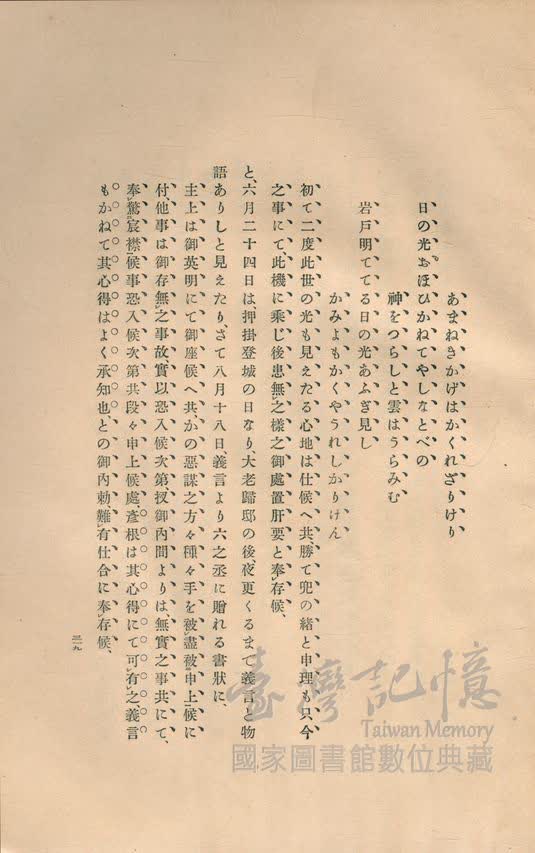 あまねきかげはかくれざりけり
日の光おほひかねてやしなとべの
神をつらしと雲はうらみむ
岩戸明ててる日の光あふぎ見し
かみよもかくやうれしかりけん
初て二度此世の光も見えたる心地は仕候へ共、勝て兜の緒と申理も只今
之事にて、此機に乘じ後患無之樣之御處置肝要と奉存候、
と、六月二十四日は、押掛登城の日なり、大老歸邸の後、夜更くるまで義言と物
語ありしと見えたり、さて八月十八日、義言より六之丞に贈れる書狀に、
主上は御英明にて御座候へ共、かの惡謀之方々種々手を被盡被申上候に
付、他事は御存無之事故、實以恐入候次第、扨御內間よりは、無實之事共にて、
奉驚宸襟候事恐入候次第共段々申上候處、彥根は其心得にて可有之、義言
もかねて其心得はよく承知也との御內勅、難有仕合に奉存候、
三一九
臺灣記憶
Taiwan Memory
國家圖書館數位典藏